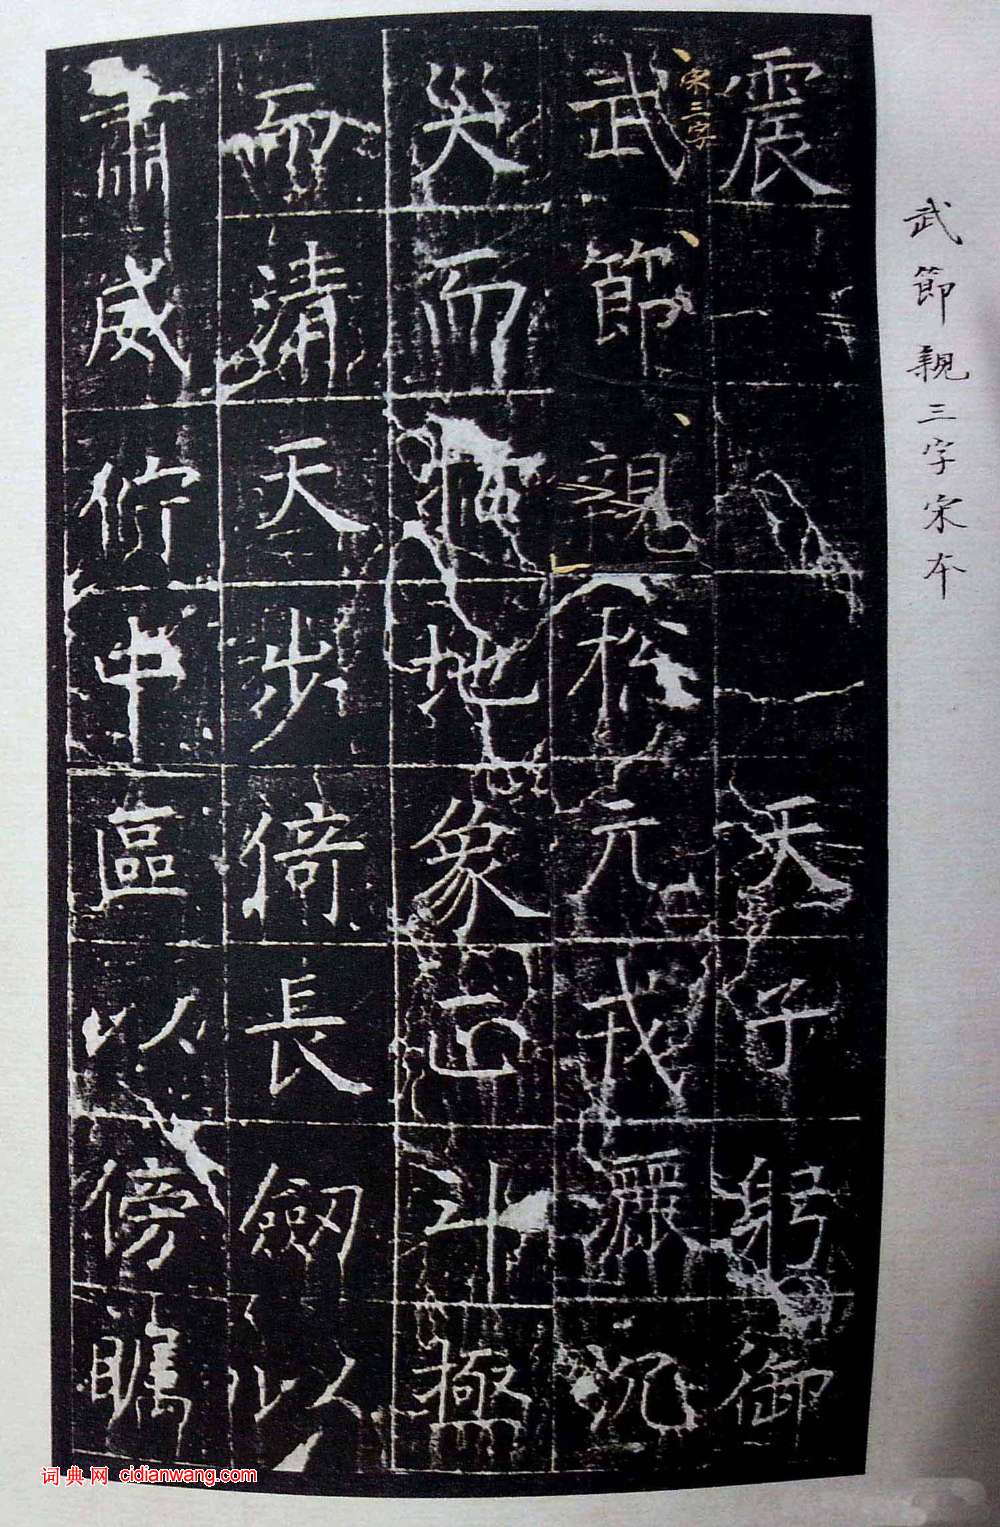 武節親三字宋本
震天子躬御
宋三字
武節親松元戎灑沉
災而地象正斗極
而清天步倚長劒以
肅威佇中區以傍矚
词典网 cidianwang.com